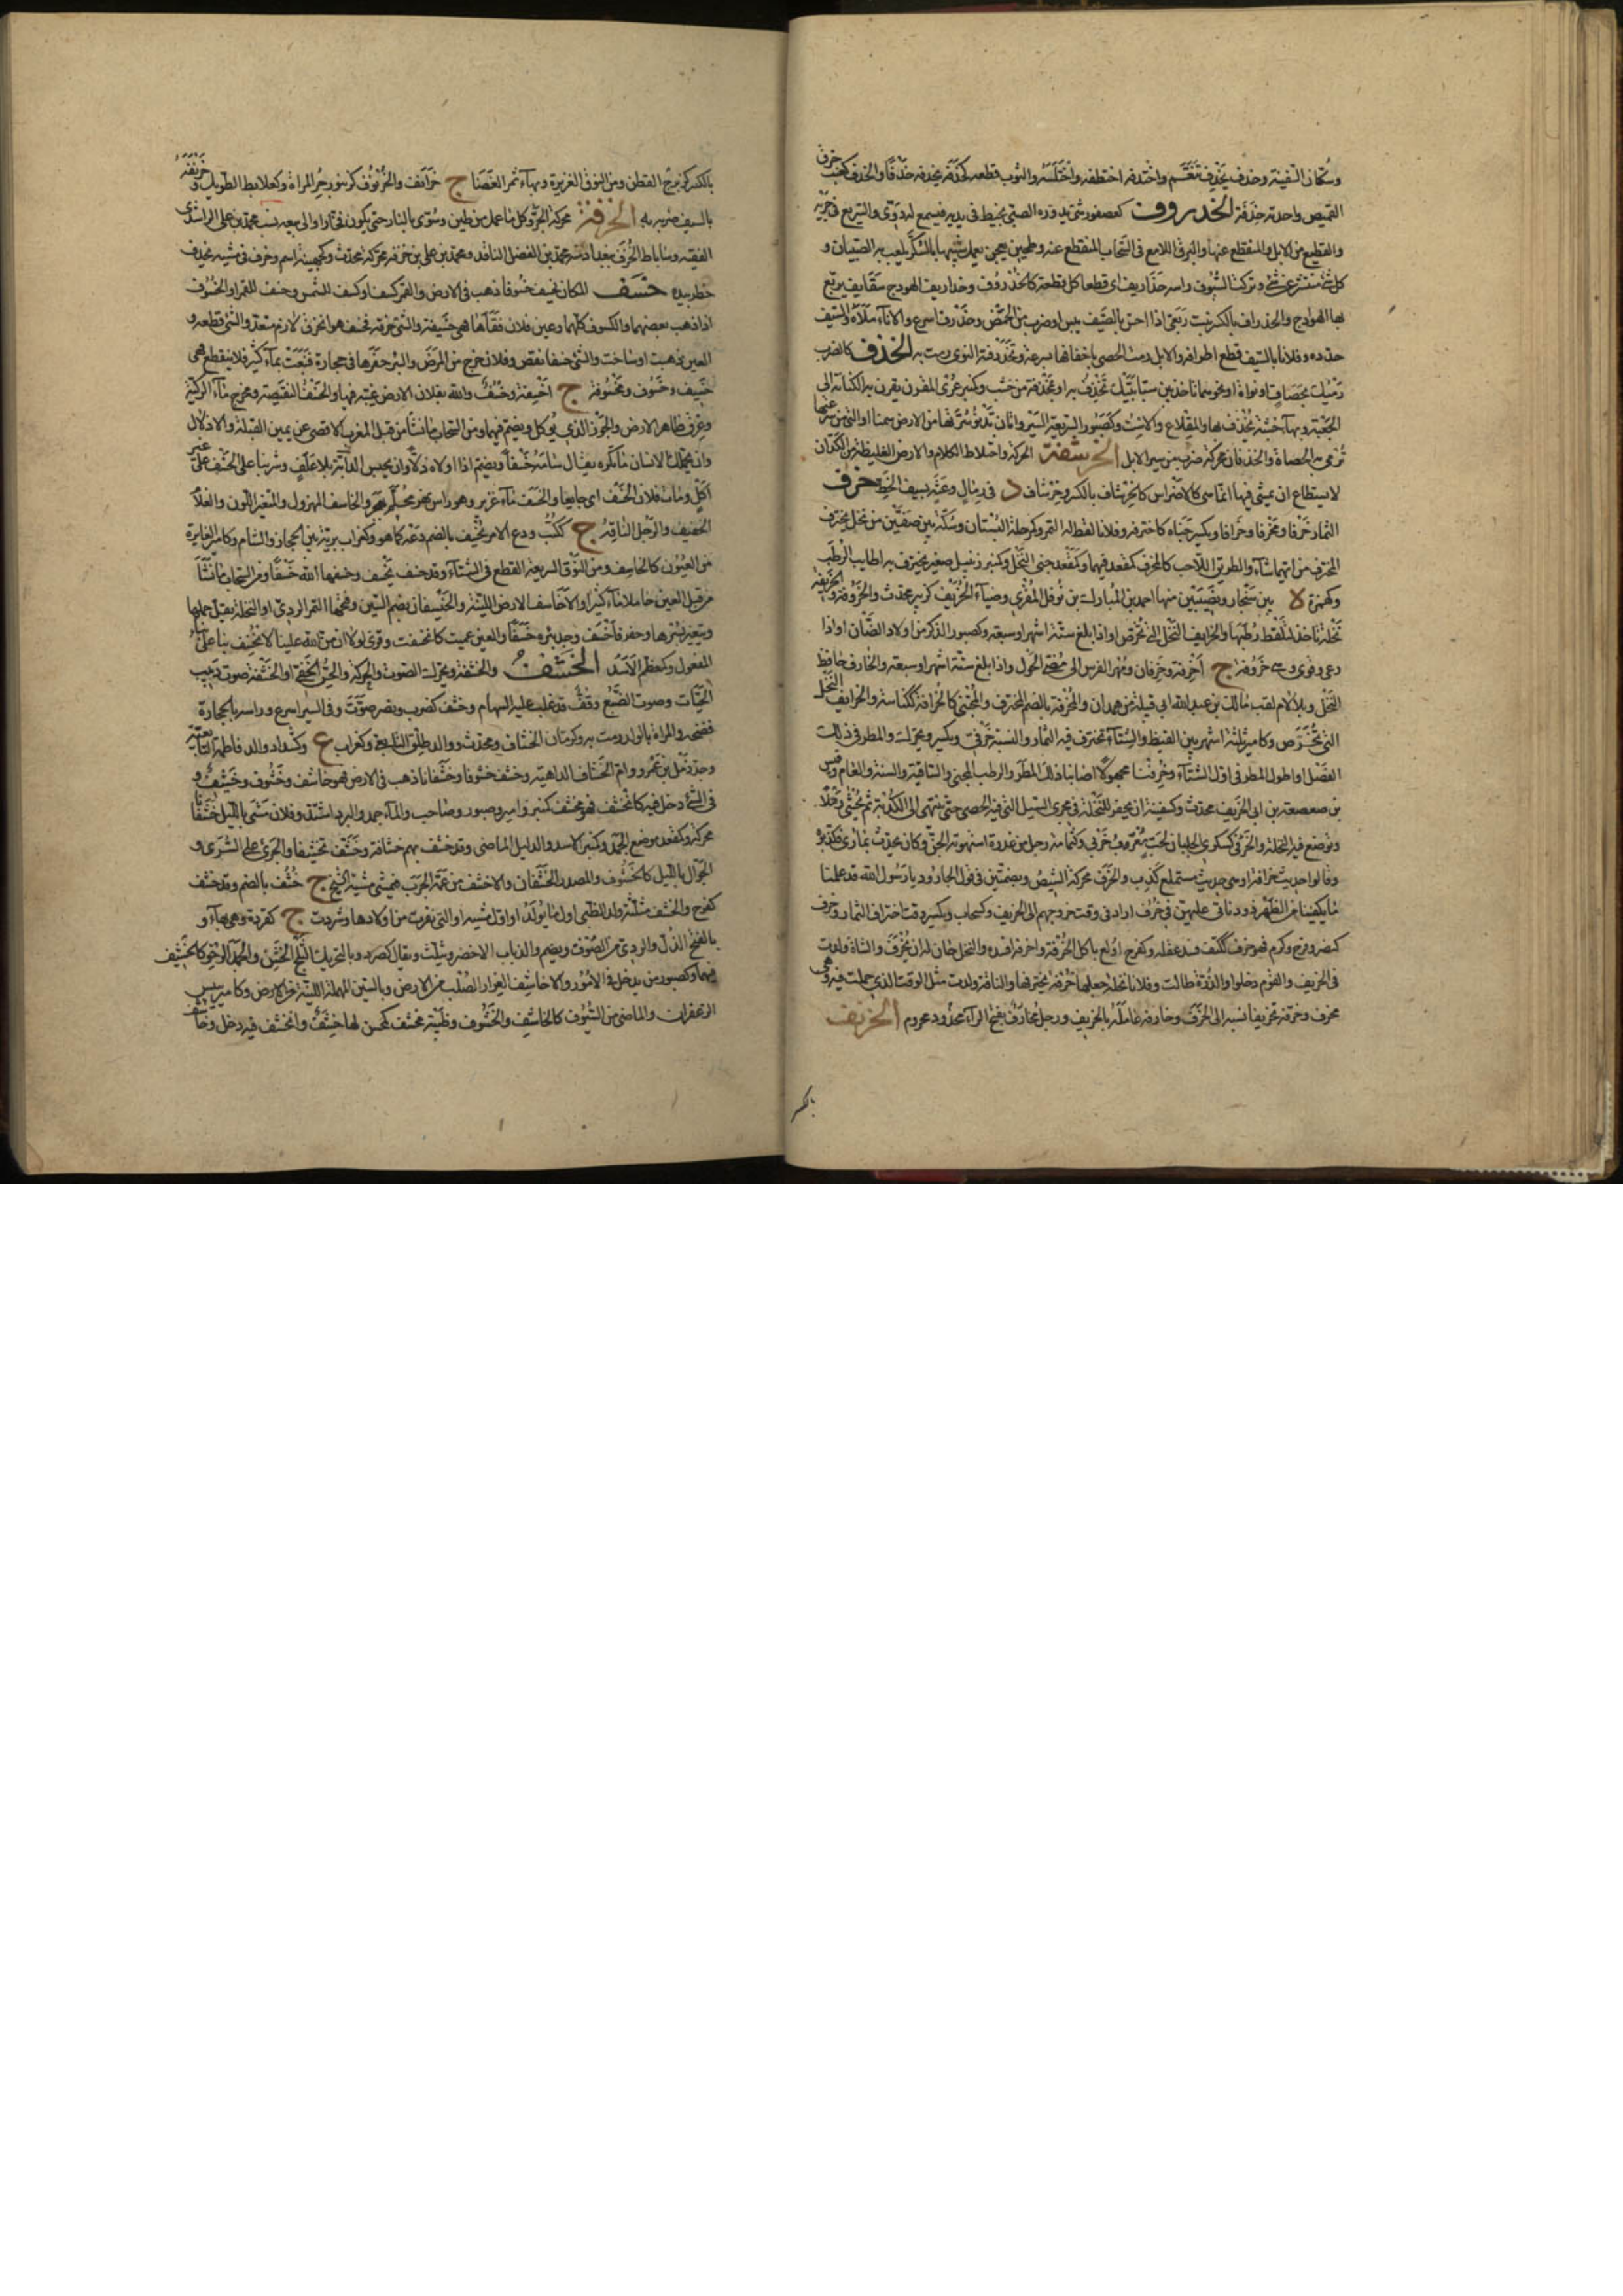 وسكان السفينة وخذف يخذف تنعم واختدفه اختطفه واختلسه والثوب قطعه كخذفه يخذفه خذفا والخذف كعنب خرق
القميص واحدته خذفة الخذروف كعصفور شئ يدوره الصبي بخيط في يديه فيسمع له دوي والسريع في جريه
والقطيع من الابل والمنقطع عنها والبرق اللامع في السحاب المنقطع عنه وطين يعجن يعمل شبيها بالسكر يلعب به الصبيان و
كل شئ منتشر عن شئ وتركت السيوف راسه خذاريف اي قطعا كل قطعة كالخذروف وخذاريف الهودج سقايف يربع
بها الهودج والخذراف بالكسر نبت ربعي اذا احس بالصيف يبس او ضرب من الحمض وخذرف اسرع والاناء ملأه والسيف
حدده وفلانا بالسيف قطع اطرافه والابل رمت الحصى باخفافها سرعة وتخذرفته النوى رمت به الخذف كالضرب
رميك بحصاة او نواة او نحوهما تاخذ بين سبابتيك تخذف به او بمخذفة من خشب وكمنبر عرى المقرن يقرن به الكنانة الى
الجعبة وبهاء خشبة يخذف بها والمقلاع والاست وكصبور السريعة السير واتان تدنو سرتها من الارض سمنا او التي من سرعتها
ترمي به الحصاة والخذفان محركة ضرب من سير الابل الخرشفة الحركة واختلاط الكلام والارض الغليظة من الكذان
لا يستطاع ان يمشى فيها انما هي كالاضراس كالخرشاف بالكسر وخرشاف د في رمال وعثة بسيف الخط خرف
الثمار خرفا ومخرفا وخرافا ويكسر جناه كاخترفه وفلانا لقط له التمر وكمرحلة البستان وسكة بين صفين من نخل يخترف
المخترف من ايهما شاء والطريق اللاحب كالمخرف كمقعد فيهما وكمقعد جنى النخل وكمنبر زنبيل صغير يخترف به اطايب الرطب
وكهمزة لا بين سنجار ونصيبين منها احمد بن المبارك بن نوفل المقرئ وضياء الخريف كزبير محدث والخروفة والخريفة
نخلة تاخذ لتلقط رطبها والخرايف النخل التي تخرص اذا بلغ ستة اشهر او سبعة وكصبور الذكر من اولاد الضان او اذا
رعى وقوي وهي خروفة ج اخرفة وخرفان ومهر الفرس الى مضي الحول واذا بلغ ستة اشهر او سبعة والخارف حافظ
النخل وبلا لام لقب مالك بن عبد الله ابي قبيلة من همدان والخرفة بالضم المخترف والمجتنى كالخرافة ككناسة والخرايف النخل
التي تخرص وكامير ثلثة اشهر بين القيظ والشتاء تخترف فيه الثمار والنسبة خرفي ويكسر ويحرك والمطر في ذلك
الفصل او اول المطر في اول الشتاء وخرفنا مجهولا اصابنا ذلك المطر والرطب المجني والساقية والسنة والعام وقيس
بن صعصعة بن ابي الخريف محدث وكسفينة ان يحفر للنخلة في مجرى السيل الذي فيه الحصى حتى ينتهي الى الكدية ثم يحشى رملا
وتوضع فيه النخلة والخرفى كسكرى الجلبان لحب معرب خرپى وكثمامة رجل من عذرة استهوته الجن وكان يحدث بما راى فكذبوه
وقالوا حديث خرافة او هي حديث مستملح كذب والخرف محركة الشيص وبضمتين في قول الجارود يا رسول الله قد علمنا
ما يكفينا من الظهر ذود ناتي عليهن في خرف اراد في وقت خروجهم الى الخريف وكسحاب ويكسر وقت اختراف الثمار وخرف
كنصر وفرح وكرم فهو خرف ككتف فسد عقله وكفرح اولع باكل الخرفة واخرفه افسده والنخل حان له ان يخرف والشاة ولدت
في الخريف والقوم دخلوا والذرة طالت وفلانا نخلة جعلها خرفة يخترفها والناقة ولدت مثل الوقت الذي حملت فيه وهي
مخرف وخرفه تخريفا نسبه الى الخرف وخارفه عامله بالخريف ورجل مخارف بفتح الراء محدود محروم الخرنف
بالكسر
بالكسر كزبرج القطن ومن النوق الغزيرة وبهاء ثمر العضاه ج خرانف والخرنوف كزنبور حر المراة وكعلابط الطويل وخرنفه
بالسيف ضربه به الخزف محركة الجر وكل ما عمل من طين وشوي بالنار حتى يكون فخارا والى بيعه نسب محمد بن علي الراشدي
الفقيه وساباط الخزف ببغداد منه محمد بن الفضل الناقد ومحمد بن علي بن خزفة محركة محدث وكجهينة اسم وخزف في مشيه يخزف
خطر بيده خسف المكان يخسف خسوفا ذهب في الارض والقمر كسف او كسف للشمس وخسف للقمر او الخسوف
اذا ذهب بعضهما والكسوف كلهما وعين فلان فقأها فهي خسيفة والشئ خرقه فخسف هو انخرق لازم متعد والشئ قطعه و
العين ذهبت او ساخت والشئ خسفا نقص وفلان خرج من المرض والبئر حفرها في حجارة فنبعت بماء كثير فلا ينقطع فهي
خسيف وخسوف ومخسوفة ج اخسفة وخسف والله بفلان الارض غيبه فيها والخسف النقيصة ومخرج ماء الركية
وعرق ظاهر الارض والجوز الذي يوكل ويضم فيهما ومن السحاب ما نشأ من قبل المغرب الاقصى عن يمين القبلة والاذلال
وان يحملك الانسان ما تكره يقال سامه خسفا ويضم اذا اولاه ذلا وان يحبس الدابة بلا علف وشربنا على الخسف على غير
اكل وبات فلان الخسف اي جايعا والخسف ماء غزير وهو راس نهر محلم بهجر والخاسف المهزول والمتغير اللون والغلام
الخفيف والرجل الناقه ج ككتب ودع الامر يخسف بالضم دعه كما هو وكغراب برية بين الحجاز والشام وكامير الغايرة
من العيون كالخاسف ومن النوق السريعة القطع في الشتاء وقد خسفت تخسف وخسفها الله خسفا ومن السحاب ما نشأ
من قبل العين حاملا ماء كثيرا والاخاسيف الارض اللينة والخيسفان بضم السين وفتحها التمر الردي او النخلة يقل حملها
ويتغير بسرها وحفر فاخسف وجد بئره خسفا والعين عميت كانخسفت وقرئ لولا ان من الله علينا لانخسف بنا على بناء
المفعول وكمعظم الاسد الخشف والخشفة ويحرك الصوت والحركة والحس الخفي او الخشفة صوت دبيب
الحيات وصوت الضبع وقف قد غلب عليه السهام وخشف كضرب ونصر صوت وفي السير اسرع وراسه بالحجارة
فضخه والمراة بالولد رمت به وكرمان الخشاف ومحدث ووالد طلق التابعي وكغراب ع وكشداد والد فاطمة التابعية
وجد زمل بن عمرو وام الخشاف الداهية وخشف خشوفا وخشفانا ذهب في الارض فهو خاشف وخشوف وخشيف و
في الشئ دخل فيه كانخشف فهو مخشف كمنبر وامير وصبور وصاحب والماء جمد والبرد اشتد وفلان مشى بالليل خشفانا
محركة وكمقعد موضع الجمد وكمنبر الاسد والدليل الماضي وقد خشف بهم خشافة وخشف تخشيفا والجري على السرى و
الجوال بالليل كالخشوف والمصدر الخشفان والاخشف من عمه الجرب فيمشي مشية الشيخ ج خشف بالضم وقد خشف
كفرح والخشف مثلثة ولد الظبي اول ما يولد او اول مشيه او التي نفرت من اولادها وشردت ج كقردة وهي بهاء و
بالفتح الذل والردي من الصوف ويضم والذباب الاخضر ويثلث ويقال كصرد وبالتحريك الثلج الخشن والجمد الرخو كالخشيف
فيهما وكصبور من يدخل في الامور والاخاشف العزاز الصلب من الارض وبالسين المهملة اللينة من الارض وكامير يبيس
الزعفران والماضي من السيوف كالخاشف والخشوف وظبية مخشف كمحسن لها خشف وانخشف فيه دخل وخاشف